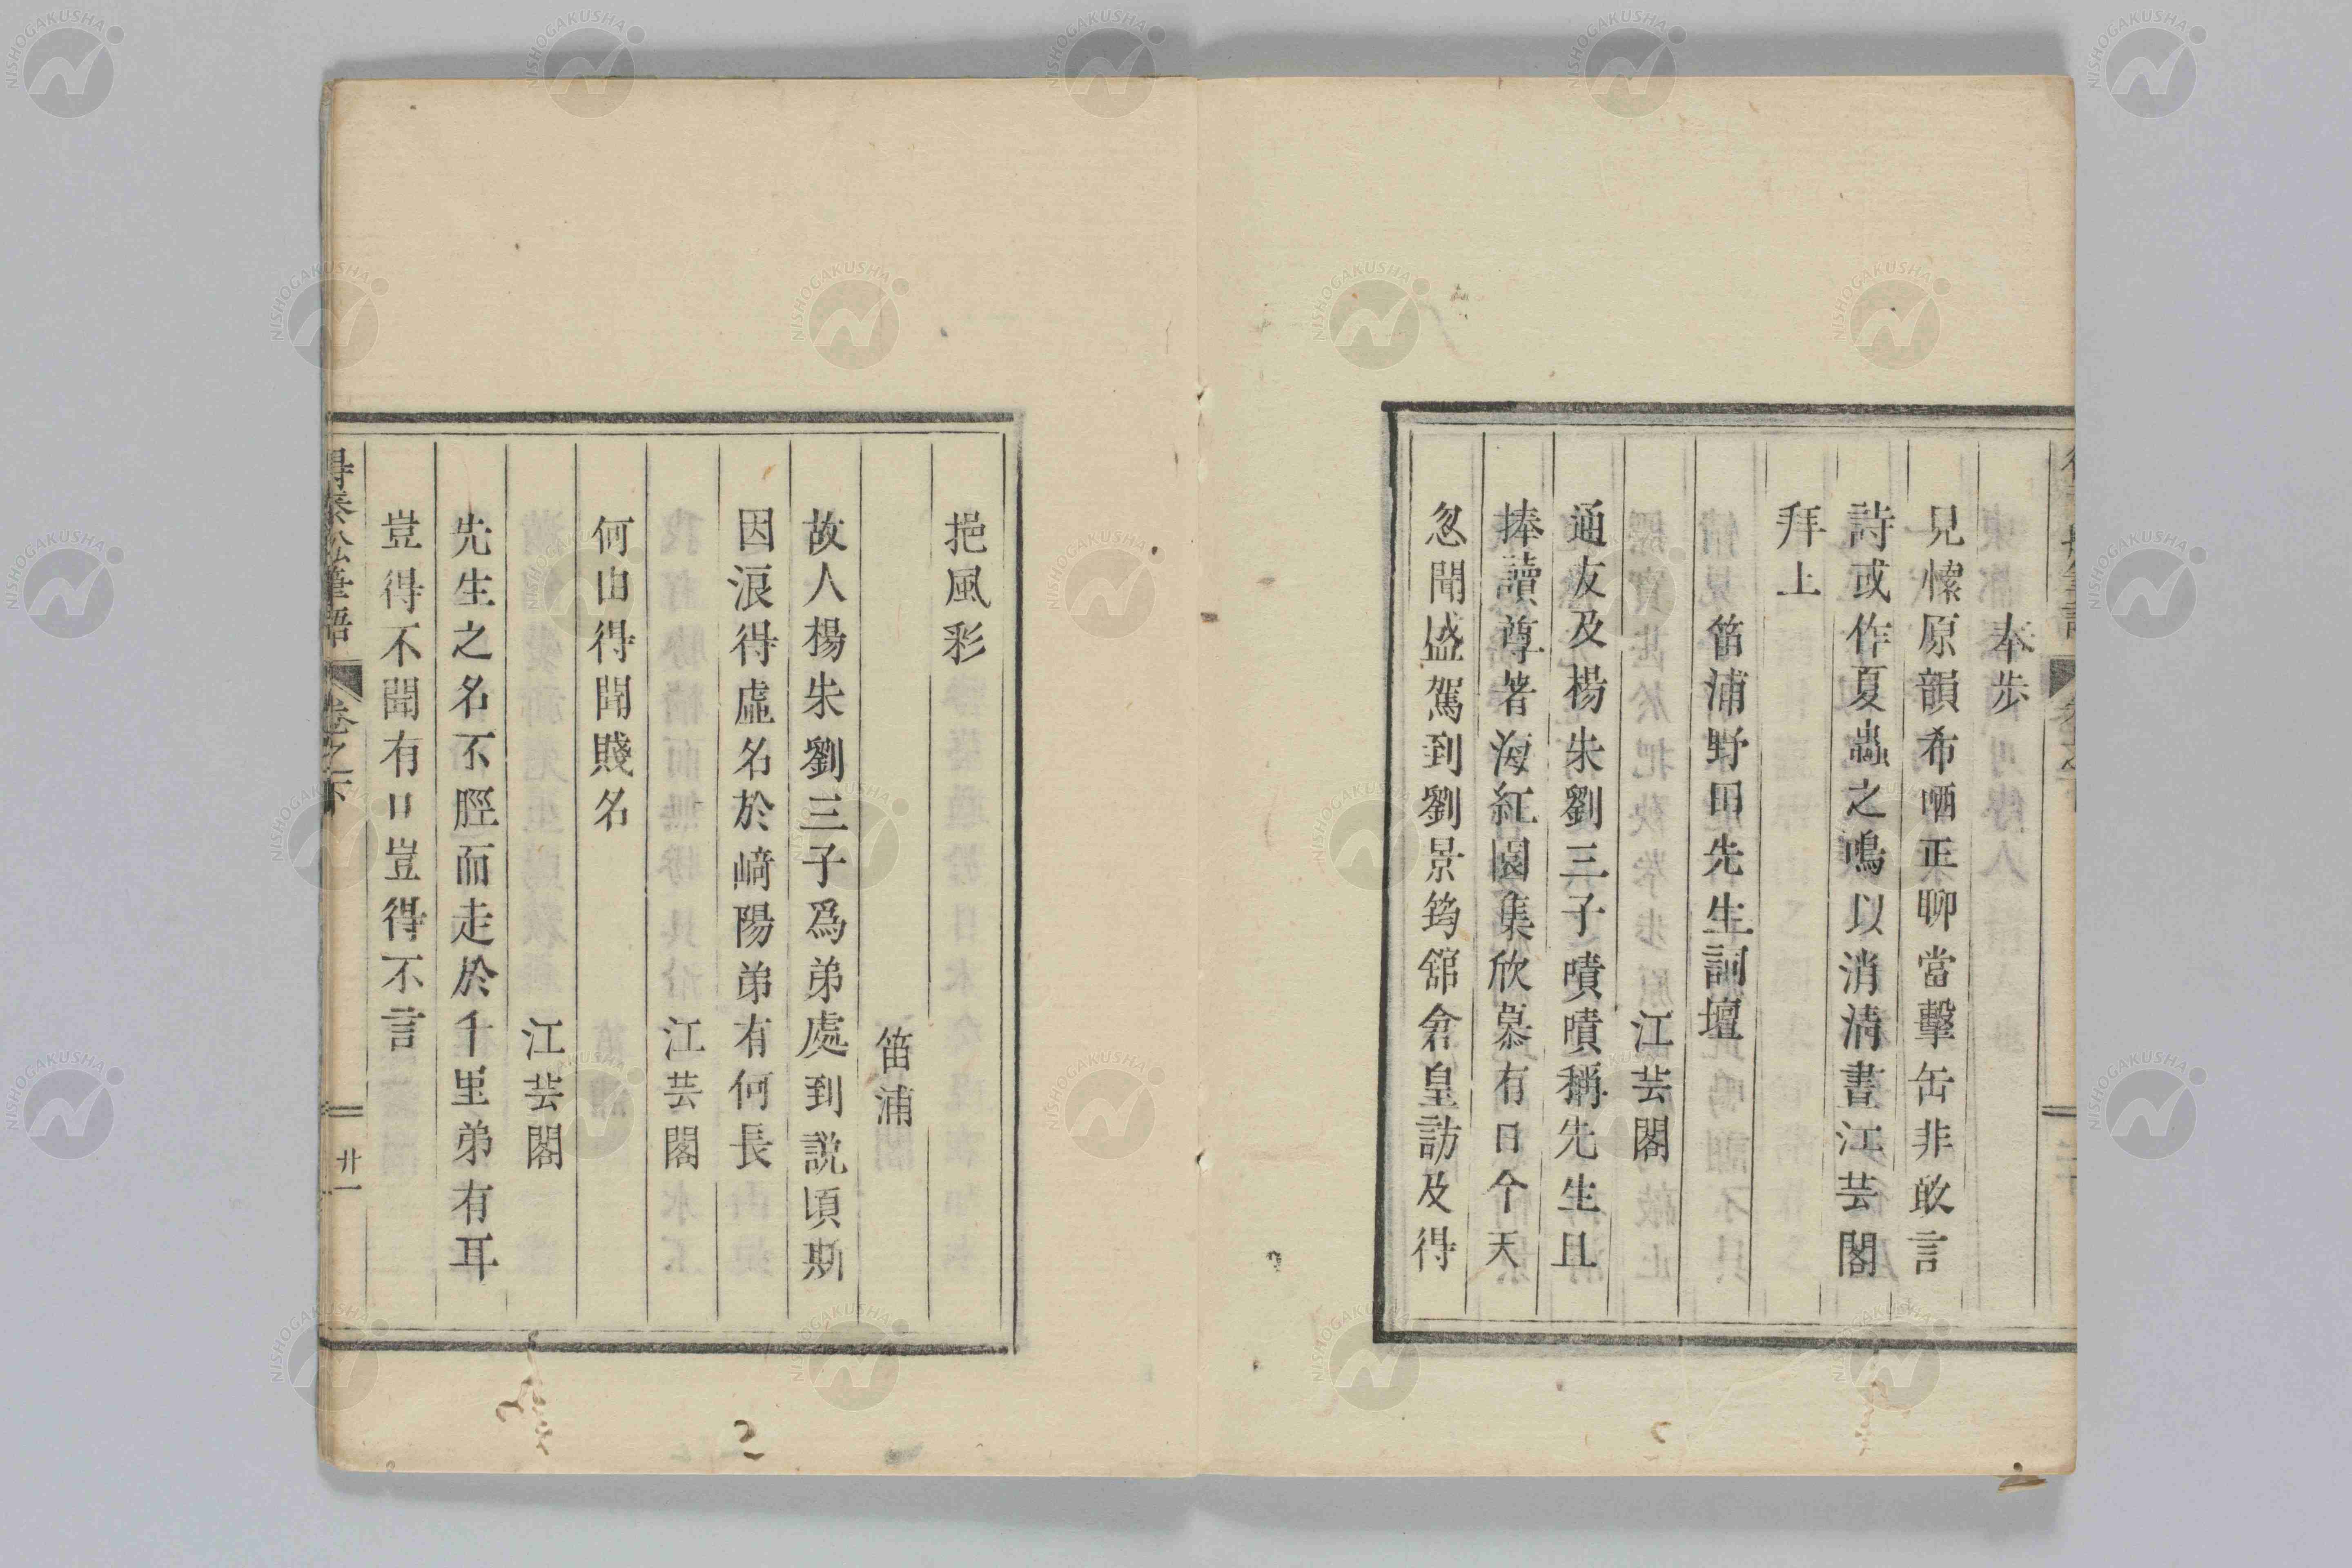 奉步
見愫原韻希哂正聊當擊缶非敢言
詩或作夏蟲之鳴以消清晝江芸閣
拜上
笛浦野田先生詞壇
江芸閣
通友及楊朱劉三子嘖嘖稱先生且
捧讀尊著海紅園集欣慕有日今天
忽聞盛駕到劉景筠舘倉皇訪及得
挹風彩
笛浦
故人楊朱劉三子爲弟處到説頃斯
因浪得虛名於﨑陽弟有何長
江芸閣
何由得聞賤名
江芸閣
先生之名不脛而走於千里弟有耳
豈得不聞有口豈得不言
得泰舩筆語 卷之下 廿一
NISHOGAKUSHA